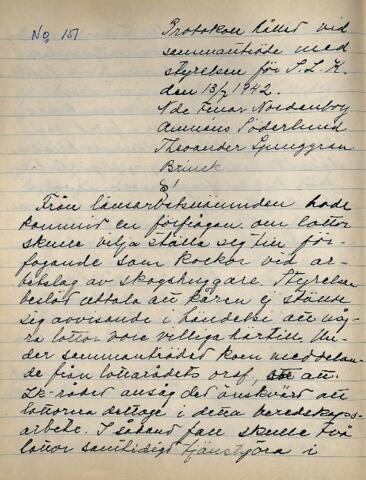 No 151
Protokoll hållet vid
sammanträde med
styrelsen för S.L.K.
den 13/7 1942.
Nde Fruar Nordenborg
Amnéus Söderlund
Theorander Ljunggren
Brinck
§1
Från länsarbetsnämnden hade
kommit en förfrågan om lottor
skulle vilja ställa sig till för-
fogande som kockor vid ar-
betslag av skogshuggare. Styrelsen
beslöt uttala att kåren ej ställde
sig avvisande i händelse att någ-
ra lottor vore villiga härtill. Un-
der sammanträdet kom meddelan-
de från lottarådets ordf, att
Lk-rådet ansåg det önskvärt att
lottorna deltoge i detta beredskaps-
arbete. I sådant fall skulle två
lottor samtidigt tjänstgöra i